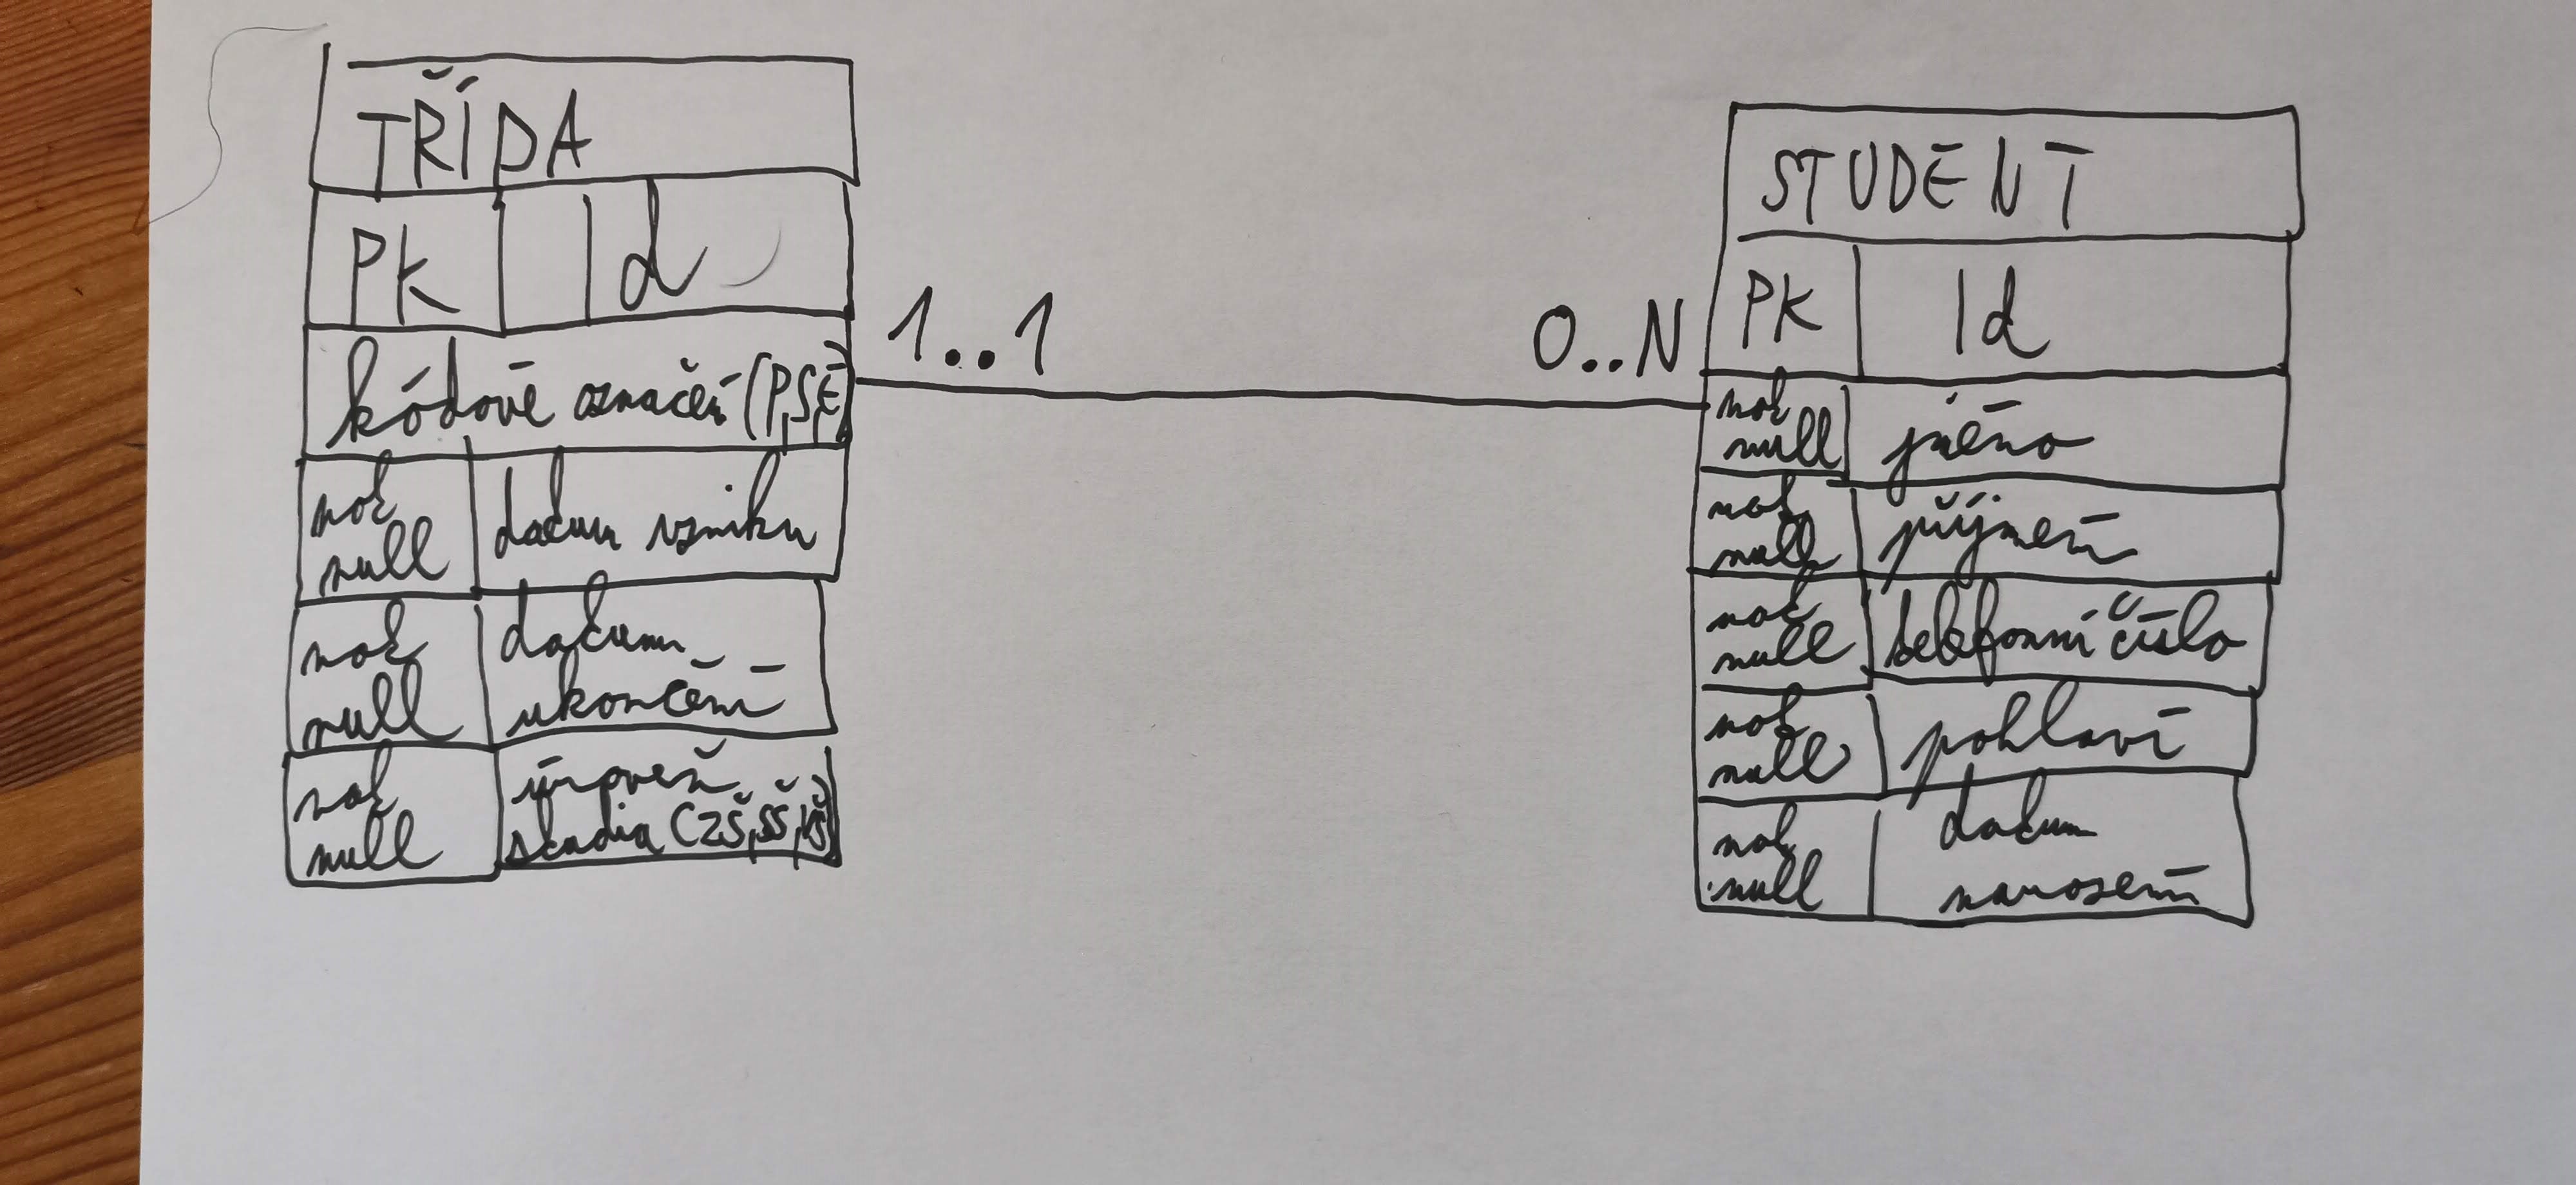 TŘÍDA
PK Id
kódové označení (P,S,E)
not null datum vzniku
not null datum ukončení
not null úroveň studia (ZŠ,SŠ,VŠ)
1..1
0..N
STUDENT
PK Id
not null jméno
not null příjmení
not null telefonní číslo
not null pohlaví
not null datum narození